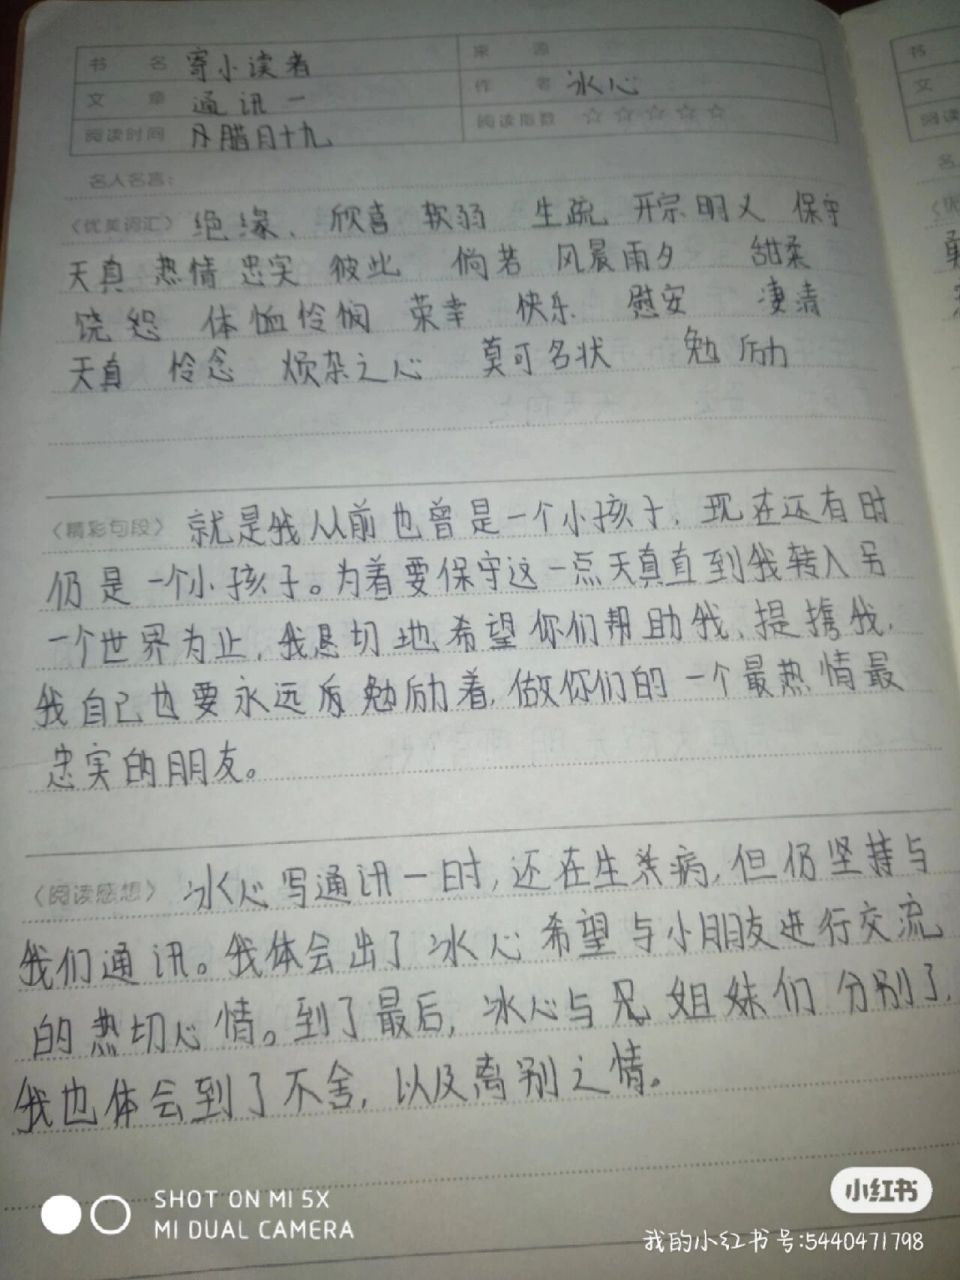 书 名 寄小读者 来 源
文 章 通讯一 作 者 冰心
阅读时间 腊月十九 阅读指数 ☆☆☆☆☆
名人名言:
〈优美词汇〉 绝缘、 欣喜 软弱 生疏 开宗明义 保守
天真 热情 忠实 彼此 倘若 风晨雨夕 甜柔
饶恕 体恤怜悯 荣幸 快乐 慰安 凄清
天真 怜念 烦杂之心 莫可名状 勉励
〈精彩句段〉 就是我从前也曾是一个小孩子,现在还有时
仍是一个小孩子。为着要保守这一点天真直到我转入另
一个世界为止,我恳切地希望你们帮助我、提携我,
我自己也要永远 勉励着,做你们的一个最热情最
忠实的朋友。
〈阅读感想〉 冰心写通讯一时,还在生养病,但仍坚持与
我们通讯。我体会出了冰心希望与小朋友进行交流
的热切心情。到了最后,冰心与兄姐妹们分别了,
我也体会到了不舍,以及离别之情。
SHOT ON MI 5X
MI DUAL CAMERA
小红书
我的小红书号:5440471798